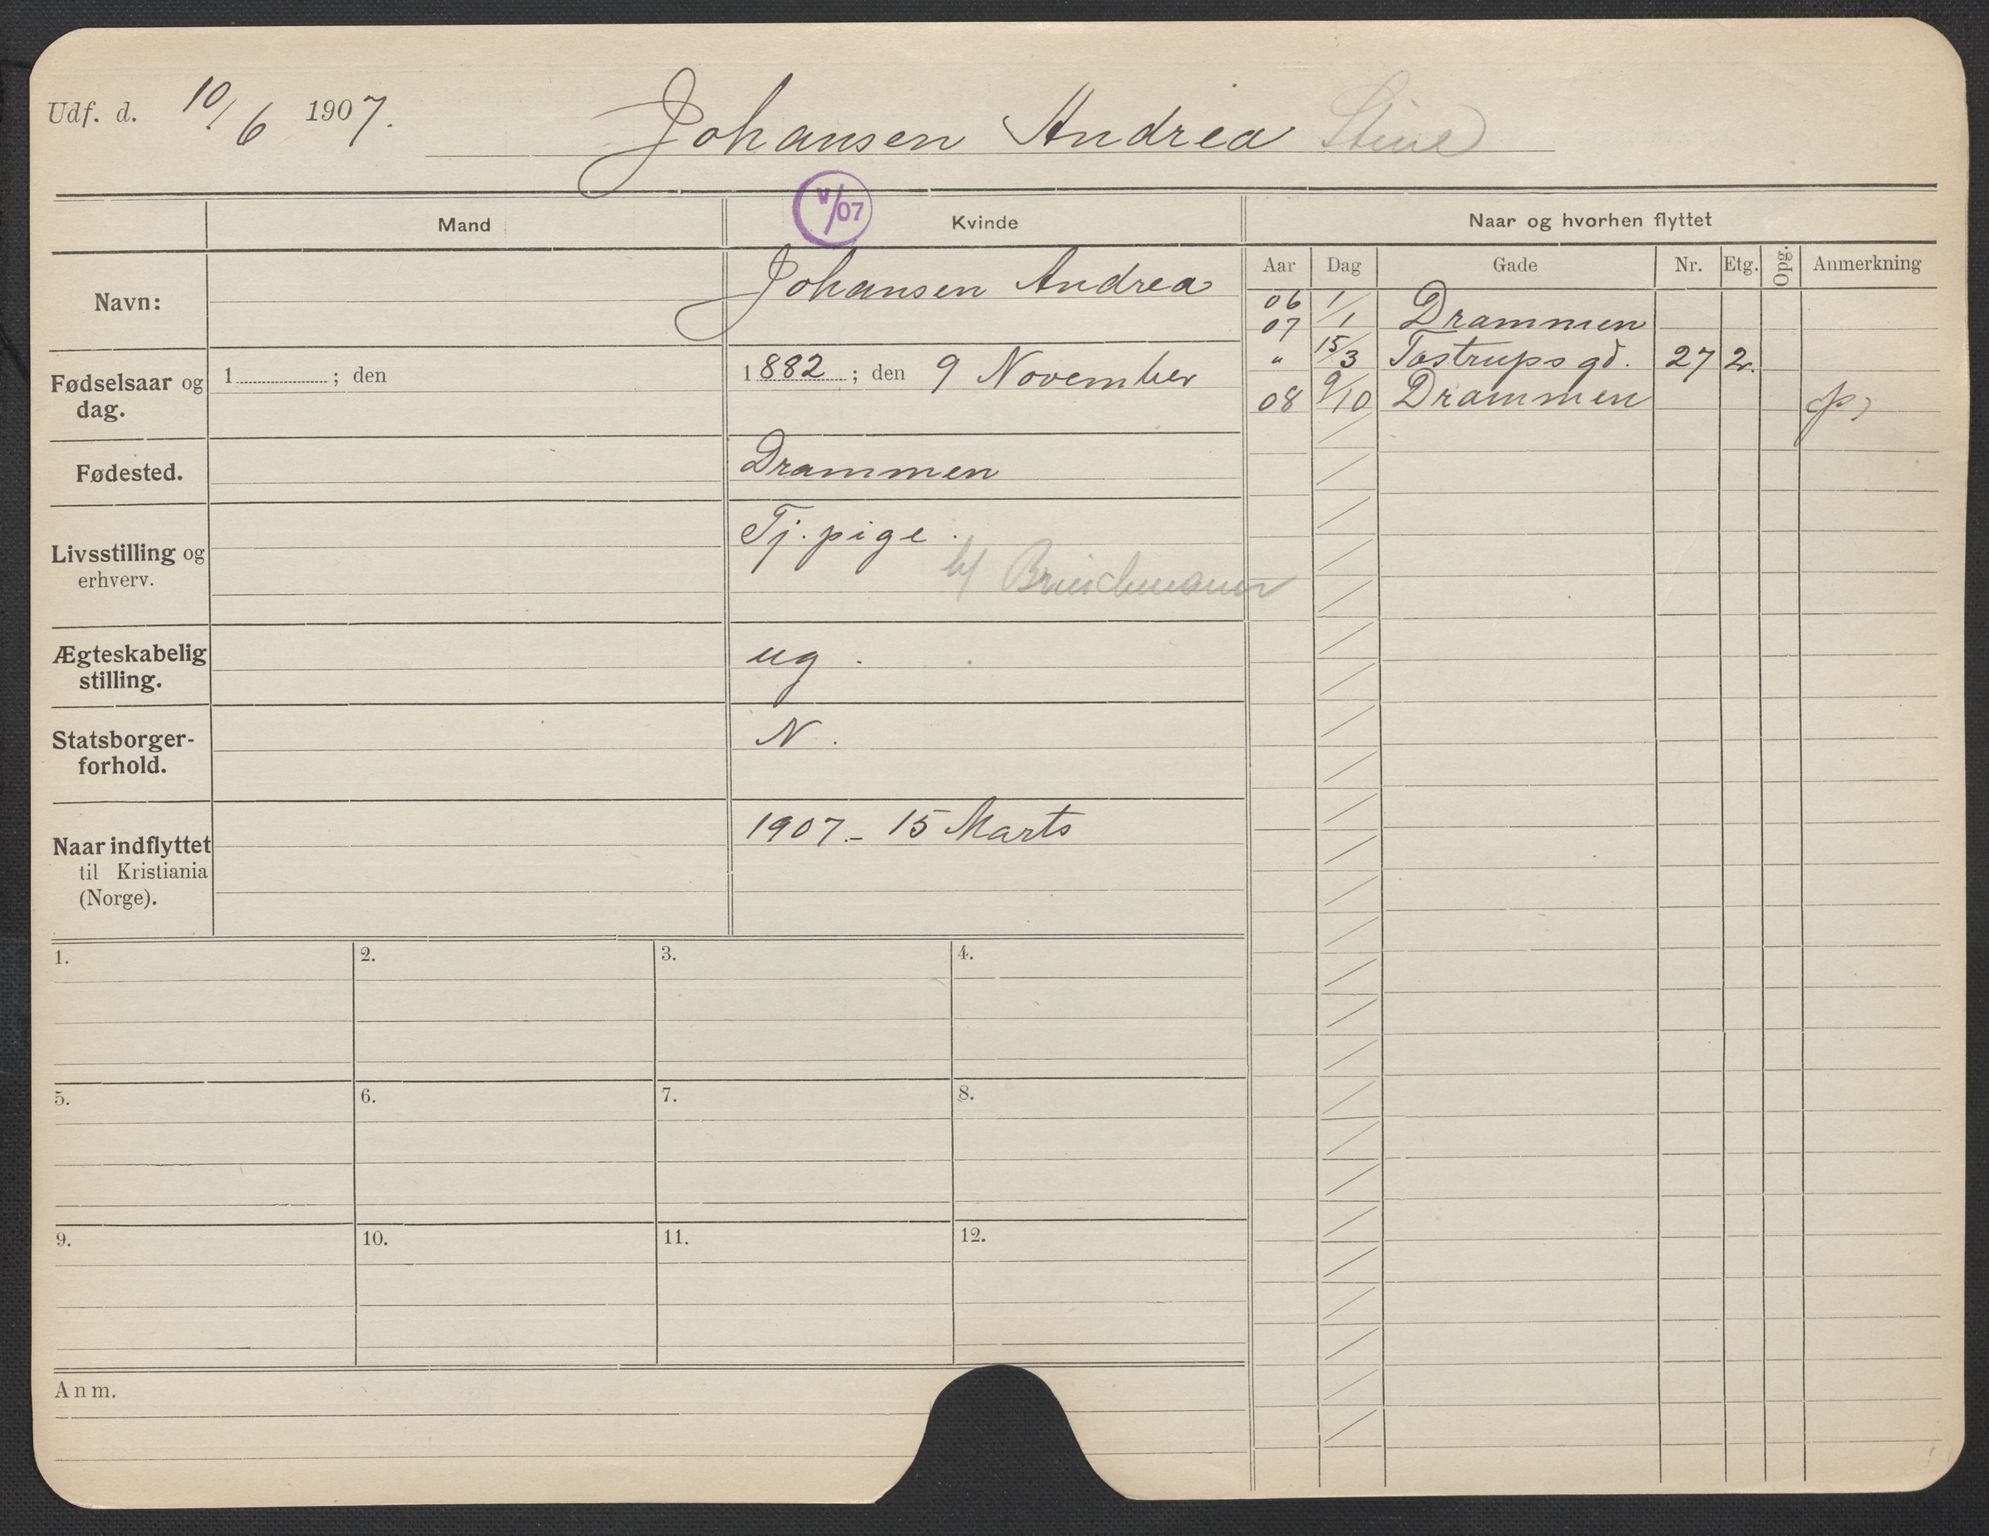 Udf. d. 10/6 1907. Johansen Andrea Stine
V/07
Mand Kvinde Naar og hvorhen flyttet
Aar Dag Gade Nr. Etg. Opg. Anmerkning
Navn: Johansen Andrea
06 1/1
07 Drammen
" 15/3 Tostrups gd. 27 2.
08 9/10 Drammen
Fødselsaar og dag. 1 ; den 1882 ; den 9 November
Fødested. Drammen
Livsstilling og erhverv. Tj. pige.
b/
Ægteskabelig stilling. ug.
Statsborger-
forhold. N.
Naar indflyttet
til Kristiania
(Norge). 1907 – 15 Marts
1. 2. 3. 4.
5. 6. 7. 8.
9. 10. 11. 12.
Anm.